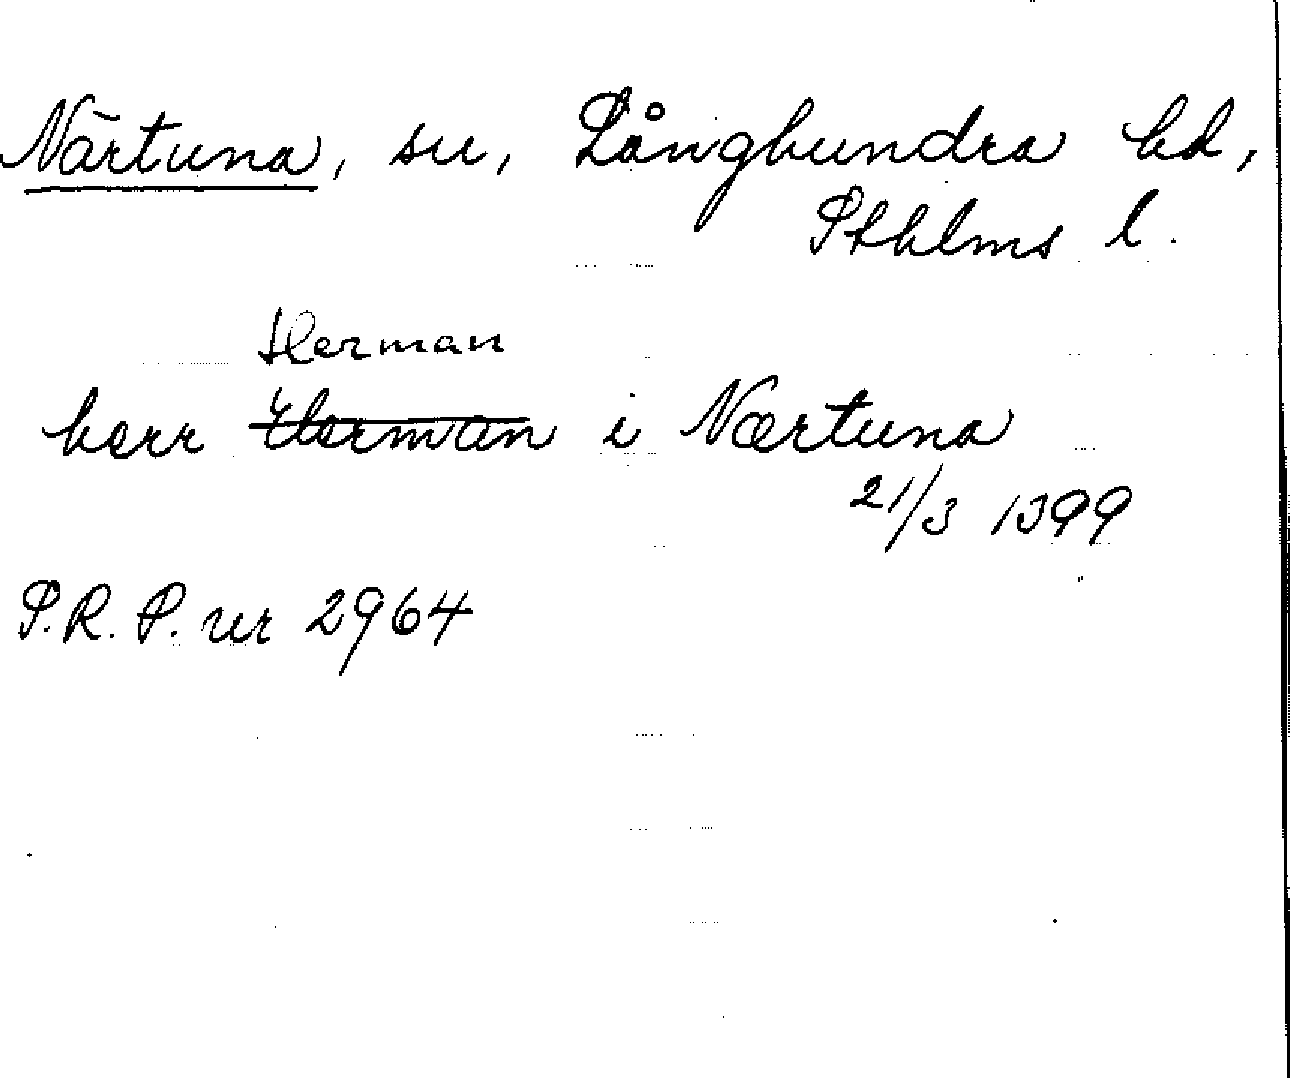 Närtuna, sn, Långhundra hd,
Sthlms l.
Herman
herr Herman i Nærtuna
21/3 1399
S.R.P. nr 2964